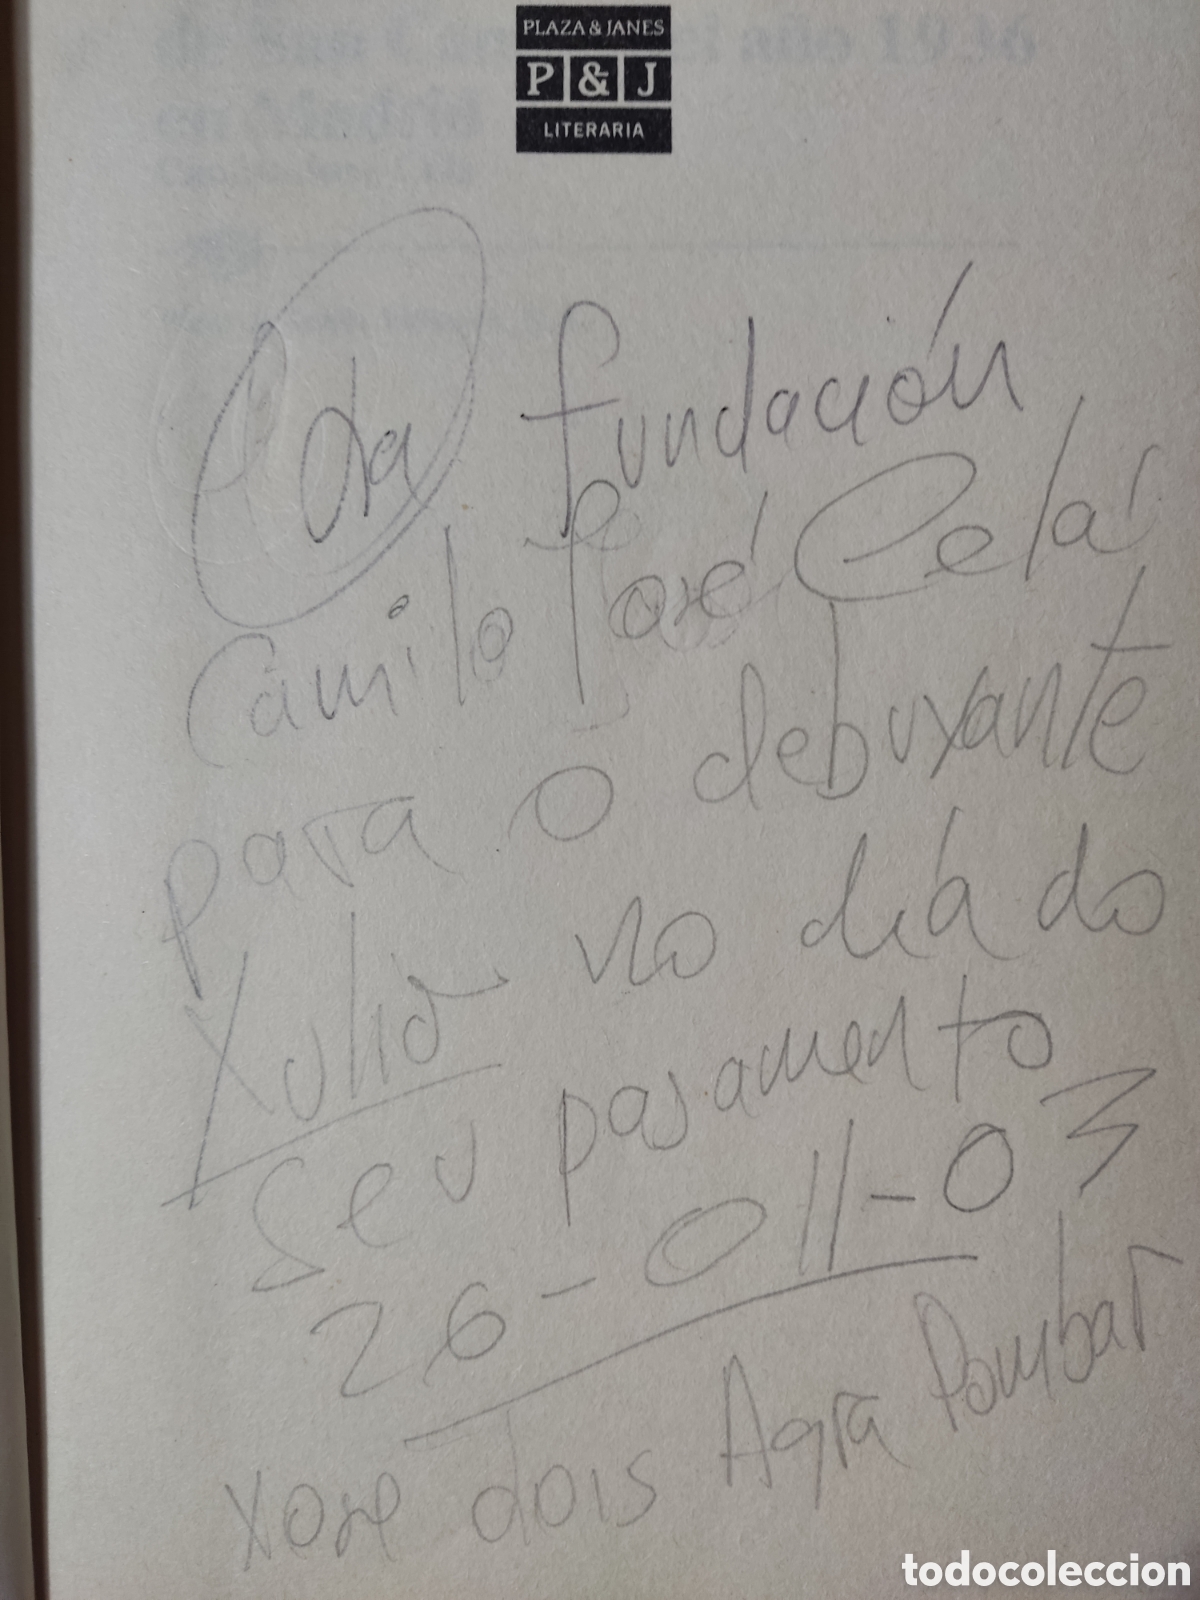 PLAZA & JANES
P & J
LITERARIA
Da Fundación
Camilo José Cela
para o debuxante
Xulio no día do
seu pasamento
26-011-03
Xose dois Agra Pombar
todocoleccion